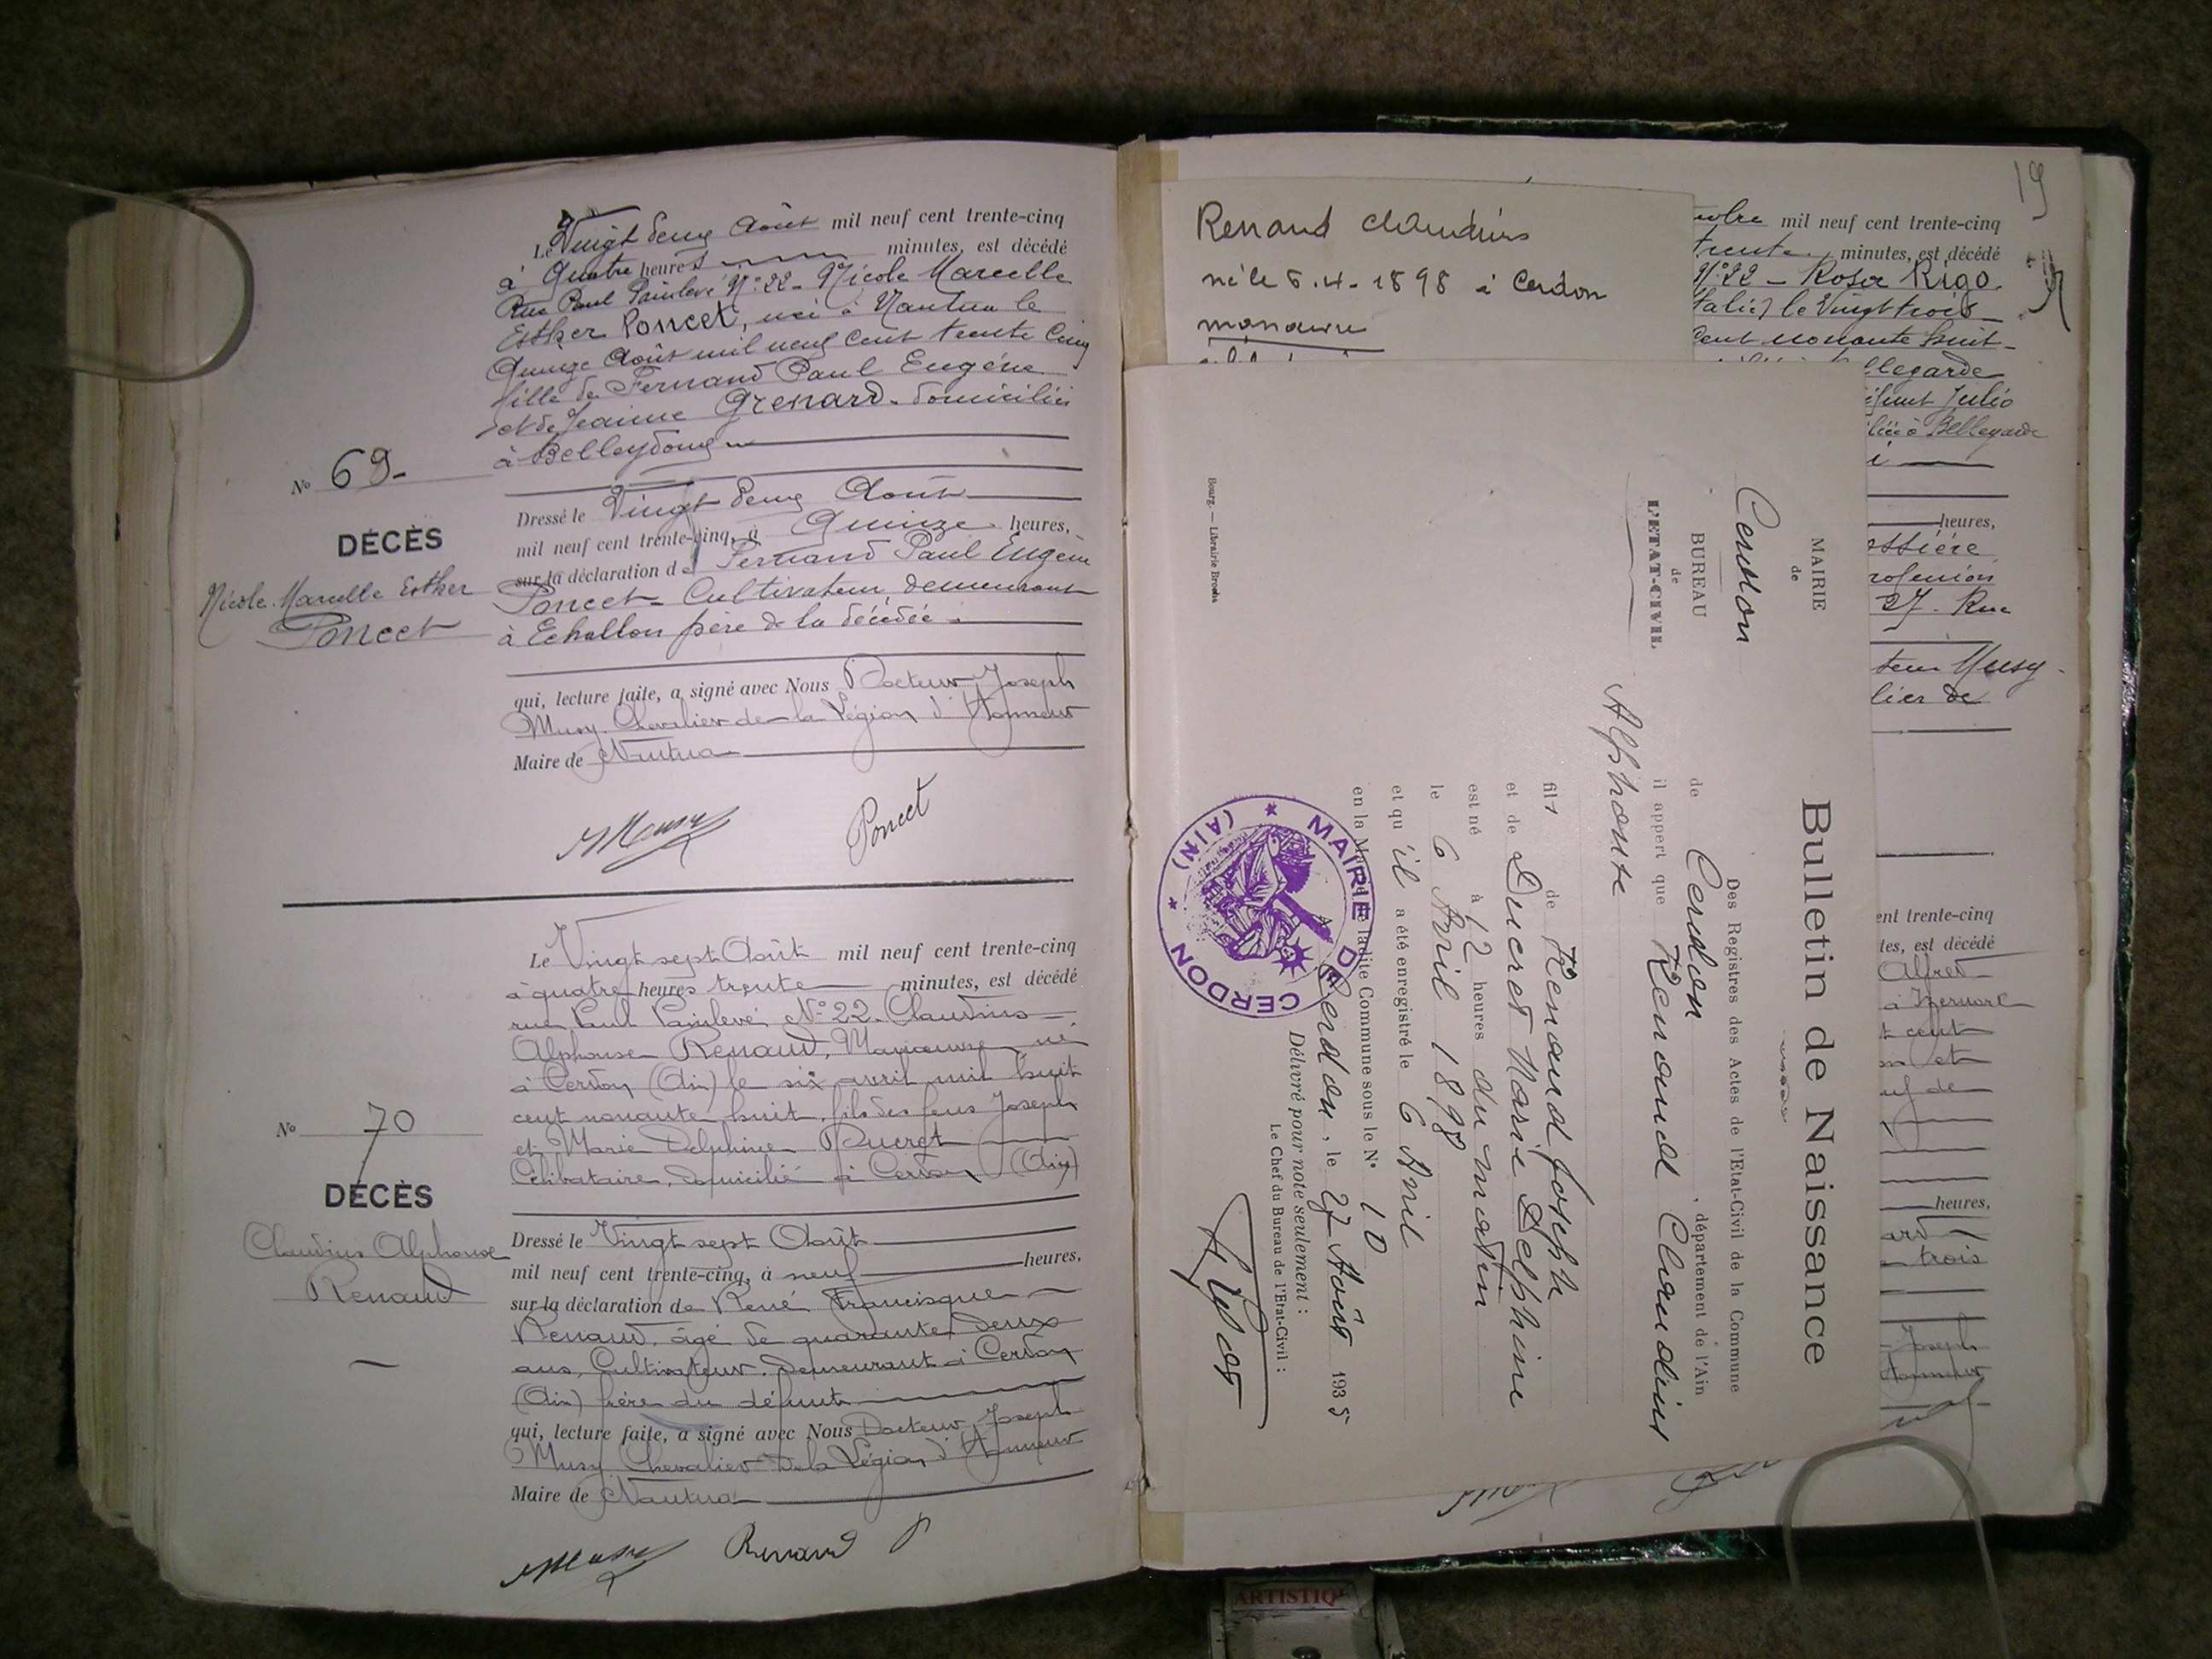 Le Vingt deux Août mil neuf cent trente-cinq
à Quatre heures minutes, est décédé
Rue Paul Painlevé N°22 - Nicole Marcelle
Esther Poncet, née à Nantua le
Quinze Août mil neuf cent trente cinq
fille de Fernand Paul Eugène
et de Jeanne Grenard - domiciliés
à Belleydoux
N° 69-
DÉCÈS
Nicole Marcelle Esther
Poncet
Dressé le Vingt deux Août
mil neuf cent trente-cinq, à Quinze heures,
sur la déclaration de Fernand Paul Eugène
Poncet - Cultivateur, demeurant
à Echallon père de la décédée.
qui, lecture faite, a signé avec Nous Docteur Joseph
Musy Chevalier de la Légion d'Honneur
Maire de Nantua
Musy Poncet
Le Vingt sept Août mil neuf cent trente-cinq
à quatre heures trente minutes, est décédé
rue Paul Painlevé N°22. Claudius
Alphonse Renaud, Manœuvre, né
à Cerdon (Ain) le six avril mil huit
cent nonante huit, fils des feus Joseph
et Marie Delphine Ducret
Célibataire, domicilié à Cerdon (Ain)
N° 70
DÉCÈS
Claudius Alphonse
Renaud
Dressé le Vingt sept Août
mil neuf cent trente-cinq, à neuf heures,
sur la déclaration de René Francisque
Renaud, âgé de quarante deux
ans, Cultivateur, demeurant à Cerdon
(Ain) frère du défunt
qui, lecture faite, a signé avec Nous Docteur Joseph
Musy Chevalier de la Légion d'Honneur
Maire de Nantua
Musy Renaud
19
Renaud Claudius
né le 6.4-1898 à Cerdon
manœuvre
mil neuf cent trente-cinq
trente minutes, est décédé
N°22 - Rosa Rigo
le Vingt trois
cent nonante huit
llegarde
Julio
à Bellegarde
heures,
27. Rue
teur Musy
lier de
ent trente-cinq
tes, est décédé
Alfred
cent
et
de
heures,
trois
Joseph
MAIRIE
de
Cerdon
BUREAU
de
L'ETAT-CIVIL
Bulletin de Naissance
Des Registres des Actes de l'Etat-Civil de la Commune
de Cerdon, département de l'Ain
il appert que Renaud Claudius
Alphonse
fils de Renaud Joseph
et de Ducret Marie Delphine
est né à 12 heures du matin
le 6 Avril 1898
et qu'il a été enregistré le 6 Avril
en la Mairie de ladite Commune sous le N° 10
Cerdon, le 27 Août 1935
Délivré pour note seulement :
Le Chef du Bureau de l'Etat-Civil :
MAIRIE DE CERDON
(AIN)
Bourg. — Librairie Brochs
ARTISTIQ